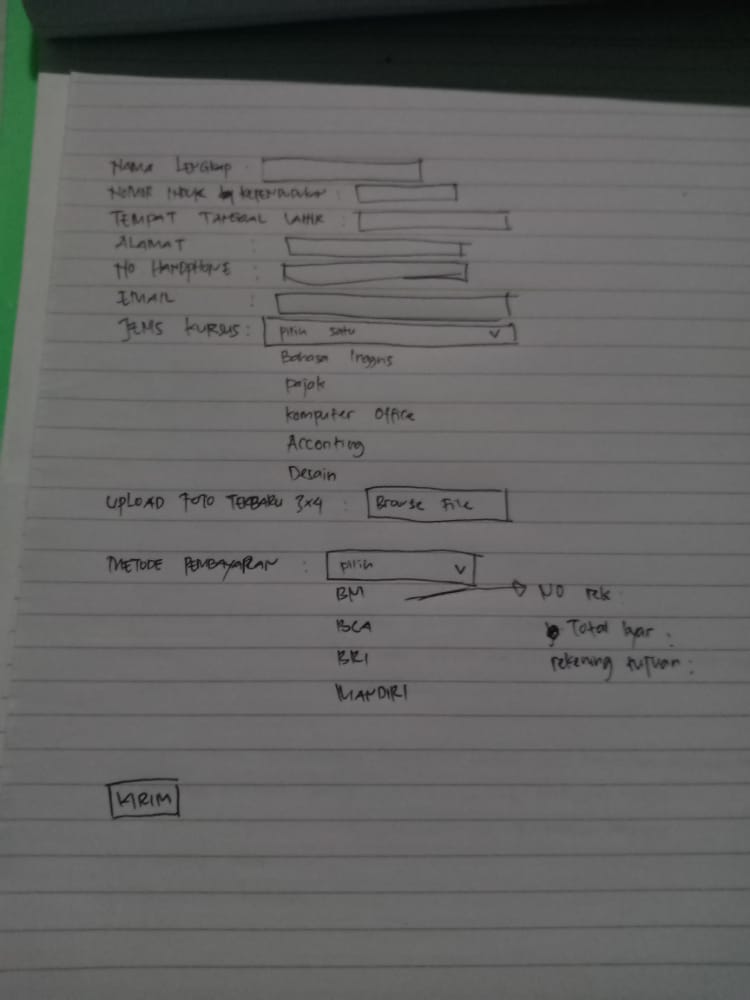 NAMA LENGKAP :
NOMOR INDUK KEPENDUDUKAN :
TEMPAT TANGGAL LAHIR :
ALAMAT :
NO HANDPHONE :
EMAIL :
JENIS KURSUS : pilih satu
Bahasa Inggris
pajak
komputer Office
Acconting
Desain
UPLOAD FOTO TERBARU 3x4 : Browse File
METODE PEMBAYARAN : pilih
BNI → NO rek :
BCA Total byar :
BRI rekening tujuan :
MANDIRI
KIRIM